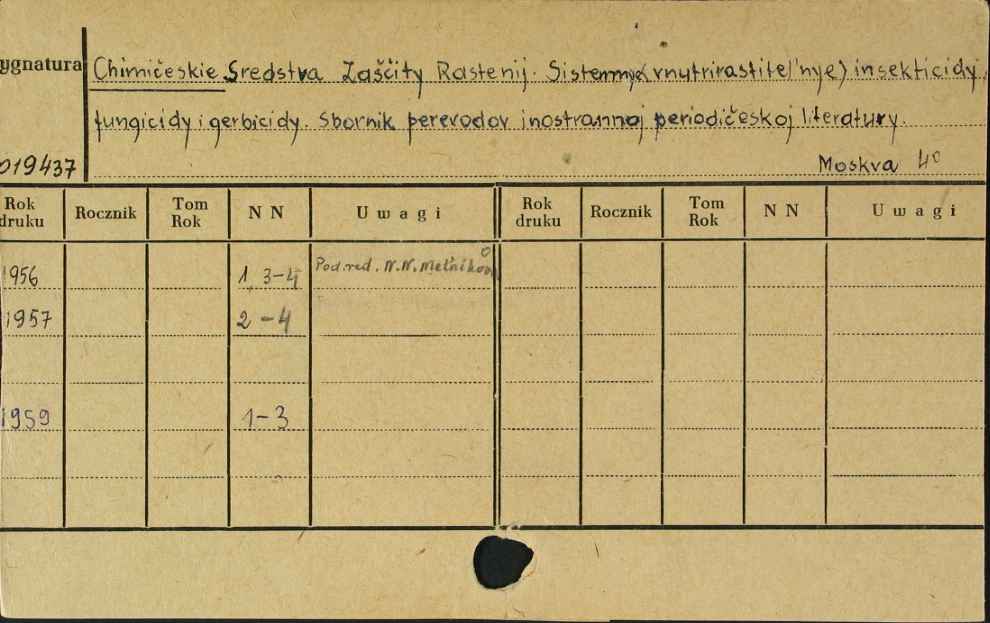 ygnatura Chimičeskie Sredstva Zaščity Rastenij. Sistemnye (vnutrirastitel'nye) insekticidy,
fungicidy i gerbicidy. Sbornik perevodov inostrannoj periodičeskoj literatury.
019437 Moskva 4°
Rok druku Rocznik Tom Rok N N Uwagi Rok druku Rocznik Tom Rok N N Uwagi
1956 1, 3-4 Pod red. N.N. Mel'nikova
1957 2-4
1959 1-3